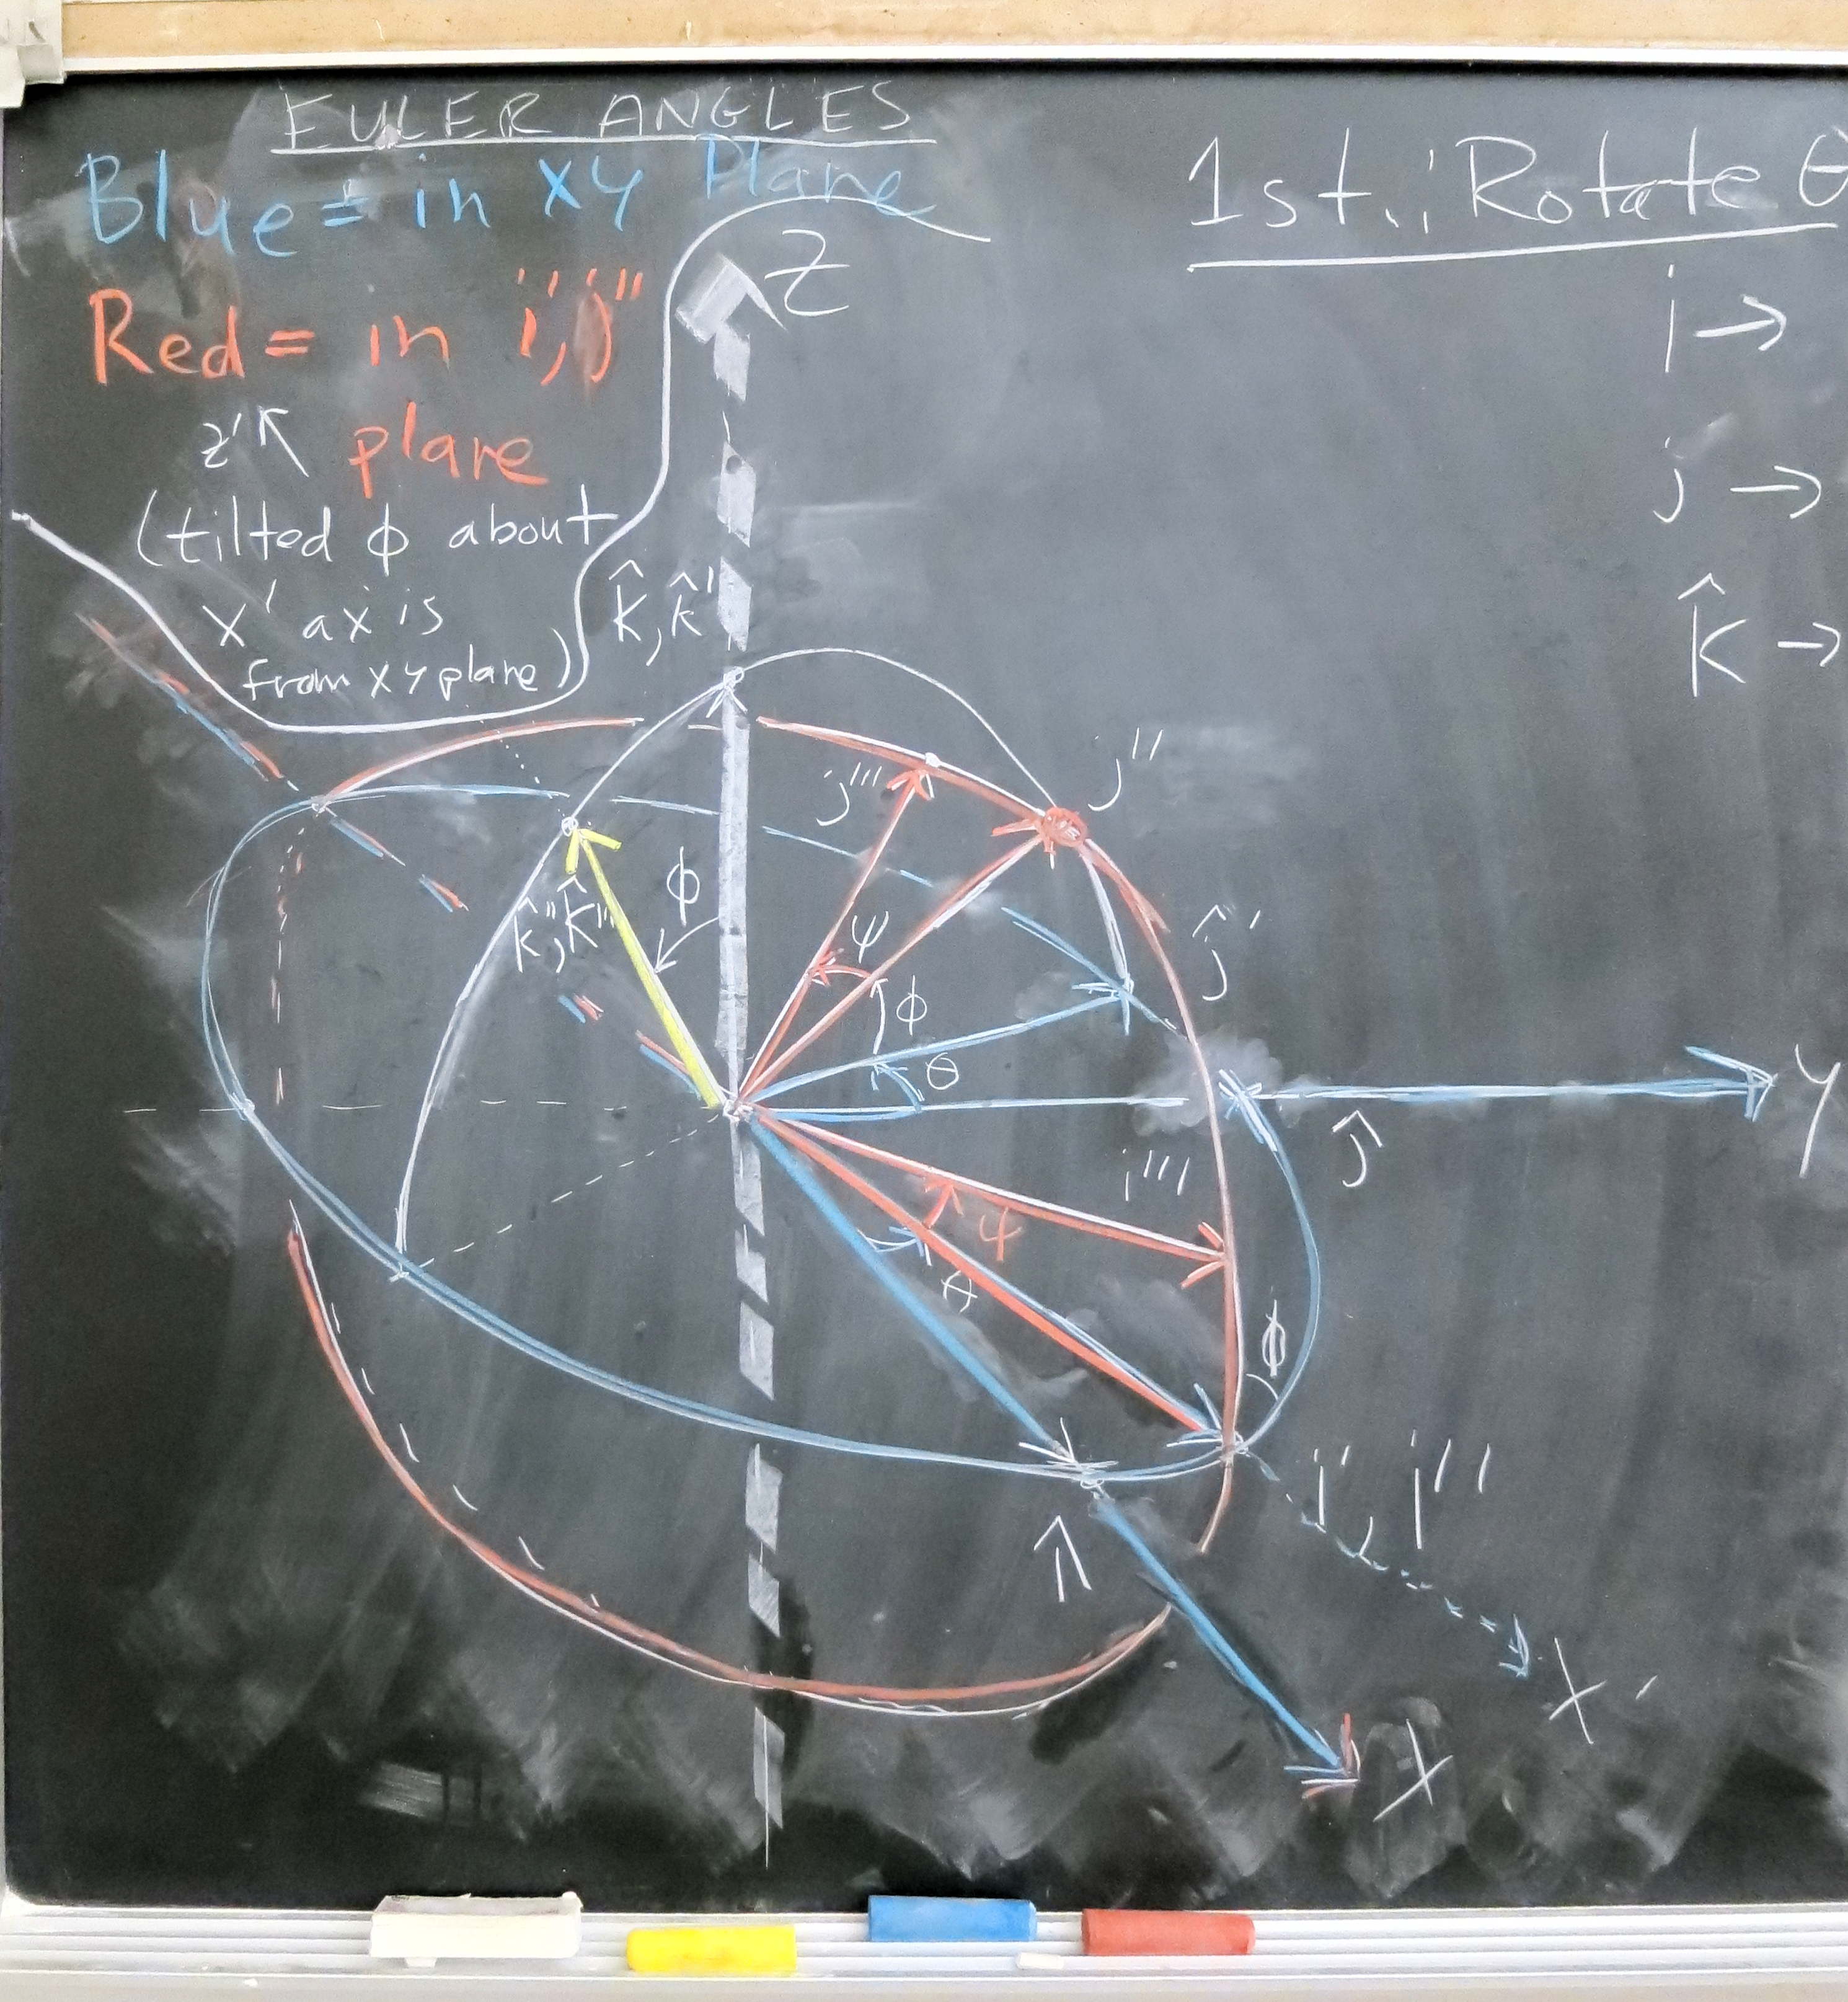 EULER ANGLES
Blue = in xy Plane
Red = in i', j''
z' ↖ plane
(tilted ϕ about
x' axis
from xy plane)
1st.; Rotate θ
i →
j →
k̂ →
Z
k̂, k̂'
j'''
j''
k̂'', k̂'''
ϕ
ψ
ĵ'
ϕ
θ
y
ĵ
i'''
ψ
θ
ϕ
i', i''
î
x'
x